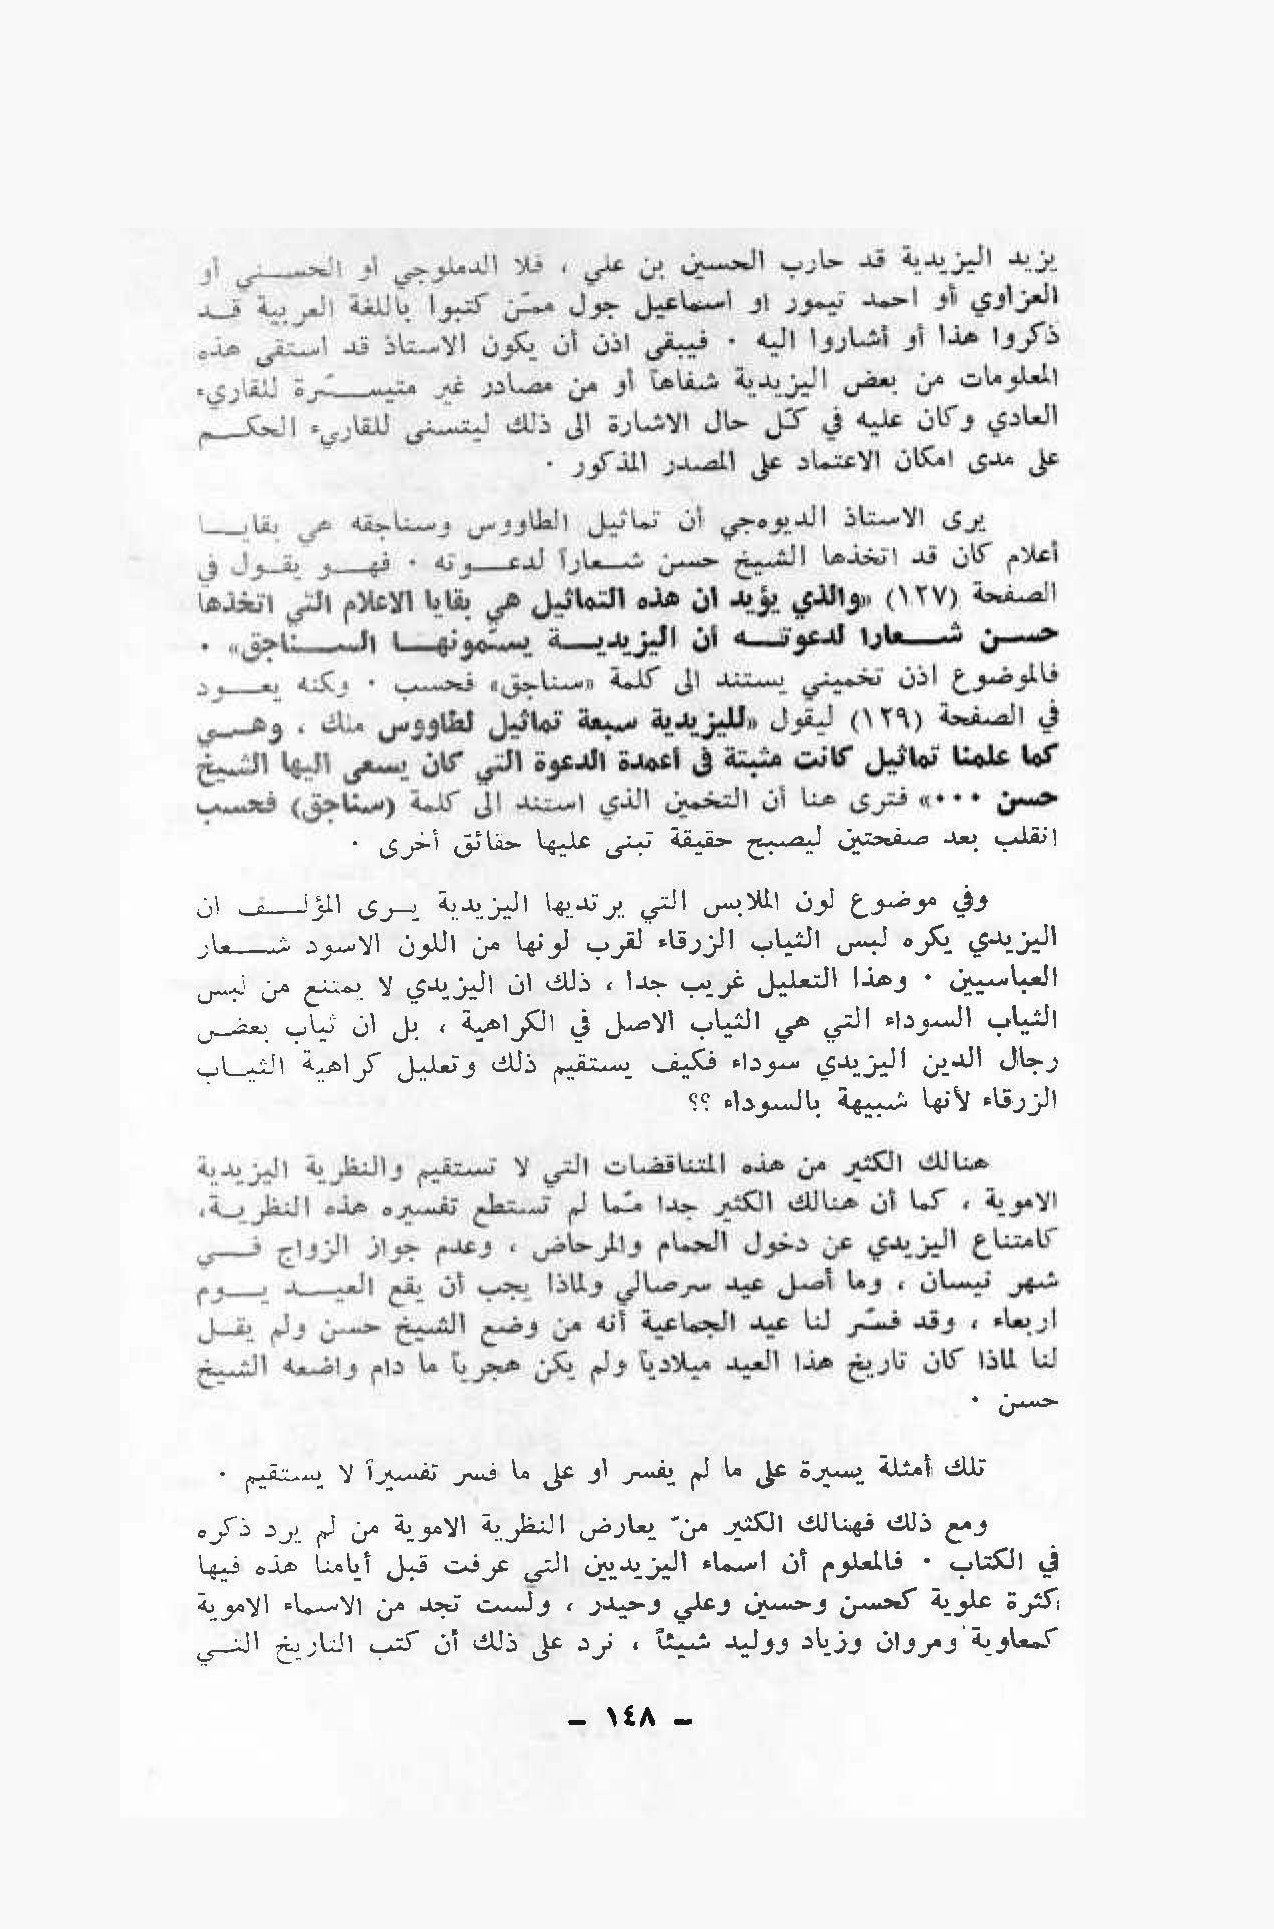 يزيد اليزيدية قد حارب الحسين بن علي ، فلا الدملوجي أو الحسني أو
العزاوي أو احمد تيمور او اسماعيل جول ممّن كتبوا باللغة العربية قد
ذكروا هذا أو أشاروا اليه · فيبقى اذن أن يكون الاستاذ قد استقى هذه
المعلومات من بعض اليزيدية شفاهاً أو من مصادر غير متيسّرة للقاريء
العادي وكان عليه في كل حال الاشارة الى ذلك ليتسنى للقاريء الحكم
على مدى امكان الاعتماد على المصدر المذكور ·
يرى الاستاذ الديوه‌جي أن تماثيل الطاووس وسناجقه هي بقايا
أعلام كان قد اتخذها الشيخ حسن شعاراً لدعوته · فهو يقول في
الصفحة (١٢٧) «والذي يؤيد ان هذه التماثيل هي بقايا الاعلام التي اتخذها
حسن شعارا لدعوته أن اليزيدية يسمّونها السناجق» ·
فالموضوع اذن تخميني يستند الى كلمة «سناجق» فحسب · وكنه يعود
في الصفحة (١٢٩) ليقول «لليزيدية سبعة تماثيل لطاووس ملك ، وهي
كما علمنا تماثيل كانت مثبتة في أعمدة الدعوة التي كان يسعى اليها الشيخ
حسن ···» فترى هنا أن التخمين الذي استند الى كلمة (سناجق) فحسب
انقلب بعد صفحتين ليصبح حقيقة تبنى عليها حقائق أخرى ·
وفي موضوع لون الملابس التي يرتديها اليزيدية يرى المؤلف ان
اليزيدي يكره لبس الثياب الزرقاء لقرب لونها من اللون الاسود شعار
العباسيين · وهذا التعليل غريب جدا ، ذلك ان اليزيدي لا يمتنع من لبس
الثياب السوداء التي هي الثياب الاصل في الكراهية ، بل ان ثياب بعض
رجال الدين اليزيدي سوداء فكيف يستقيم ذلك وتعليل كراهية الثياب
الزرقاء لأنها شبيهة بالسوداء ؟؟
هنالك الكثير من هذه المتناقضات التي لا تستقيم والنظرية اليزيدية
الاموية ، كما أن هنالك الكثير جدا ممّا لم تستطع تفسيره هذه النظرية،
كامتناع اليزيدي عن دخول الحمام والمرحاض ، وعدم جواز الزواج في
شهر نيسان ، وما أصل عيد سرصالي ولماذا يجب أن يقع العيد يوم
اربعاء ، وقد فسّر لنا عيد الجماعية أنه من وضع الشيخ حسن ولم يقل
لنا لماذا كان تاريخ هذا العيد ميلادياً ولم يكن هجرياً ما دام واضعه الشيخ
حسن ·
تلك أمثلة يسيرة على ما لم يفسر او على ما فسر تفسيراً لا يستقيم ·
ومع ذلك فهنالك الكثير منّ يعارض النظرية الاموية من لم يرد ذكره
في الكتاب · فالمعلوم أن اسماء اليزيديين التي عرفت قبل أيامنا هذه فيها
كثرة علوية كحسن وحسين وعلي وحيدر ، ولست تجد من الاسماء الاموية
كمعاوية ومروان وزياد ووليد شيئاً ، نرد على ذلك أن كتب التاريخ التي
– ١٤٨ –